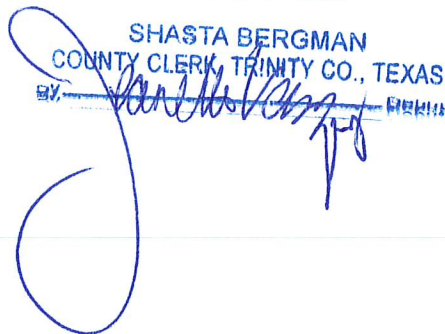 SHASTA BERGMAN
COUNTY CLERK, TRINITY CO., TEXAS
BY